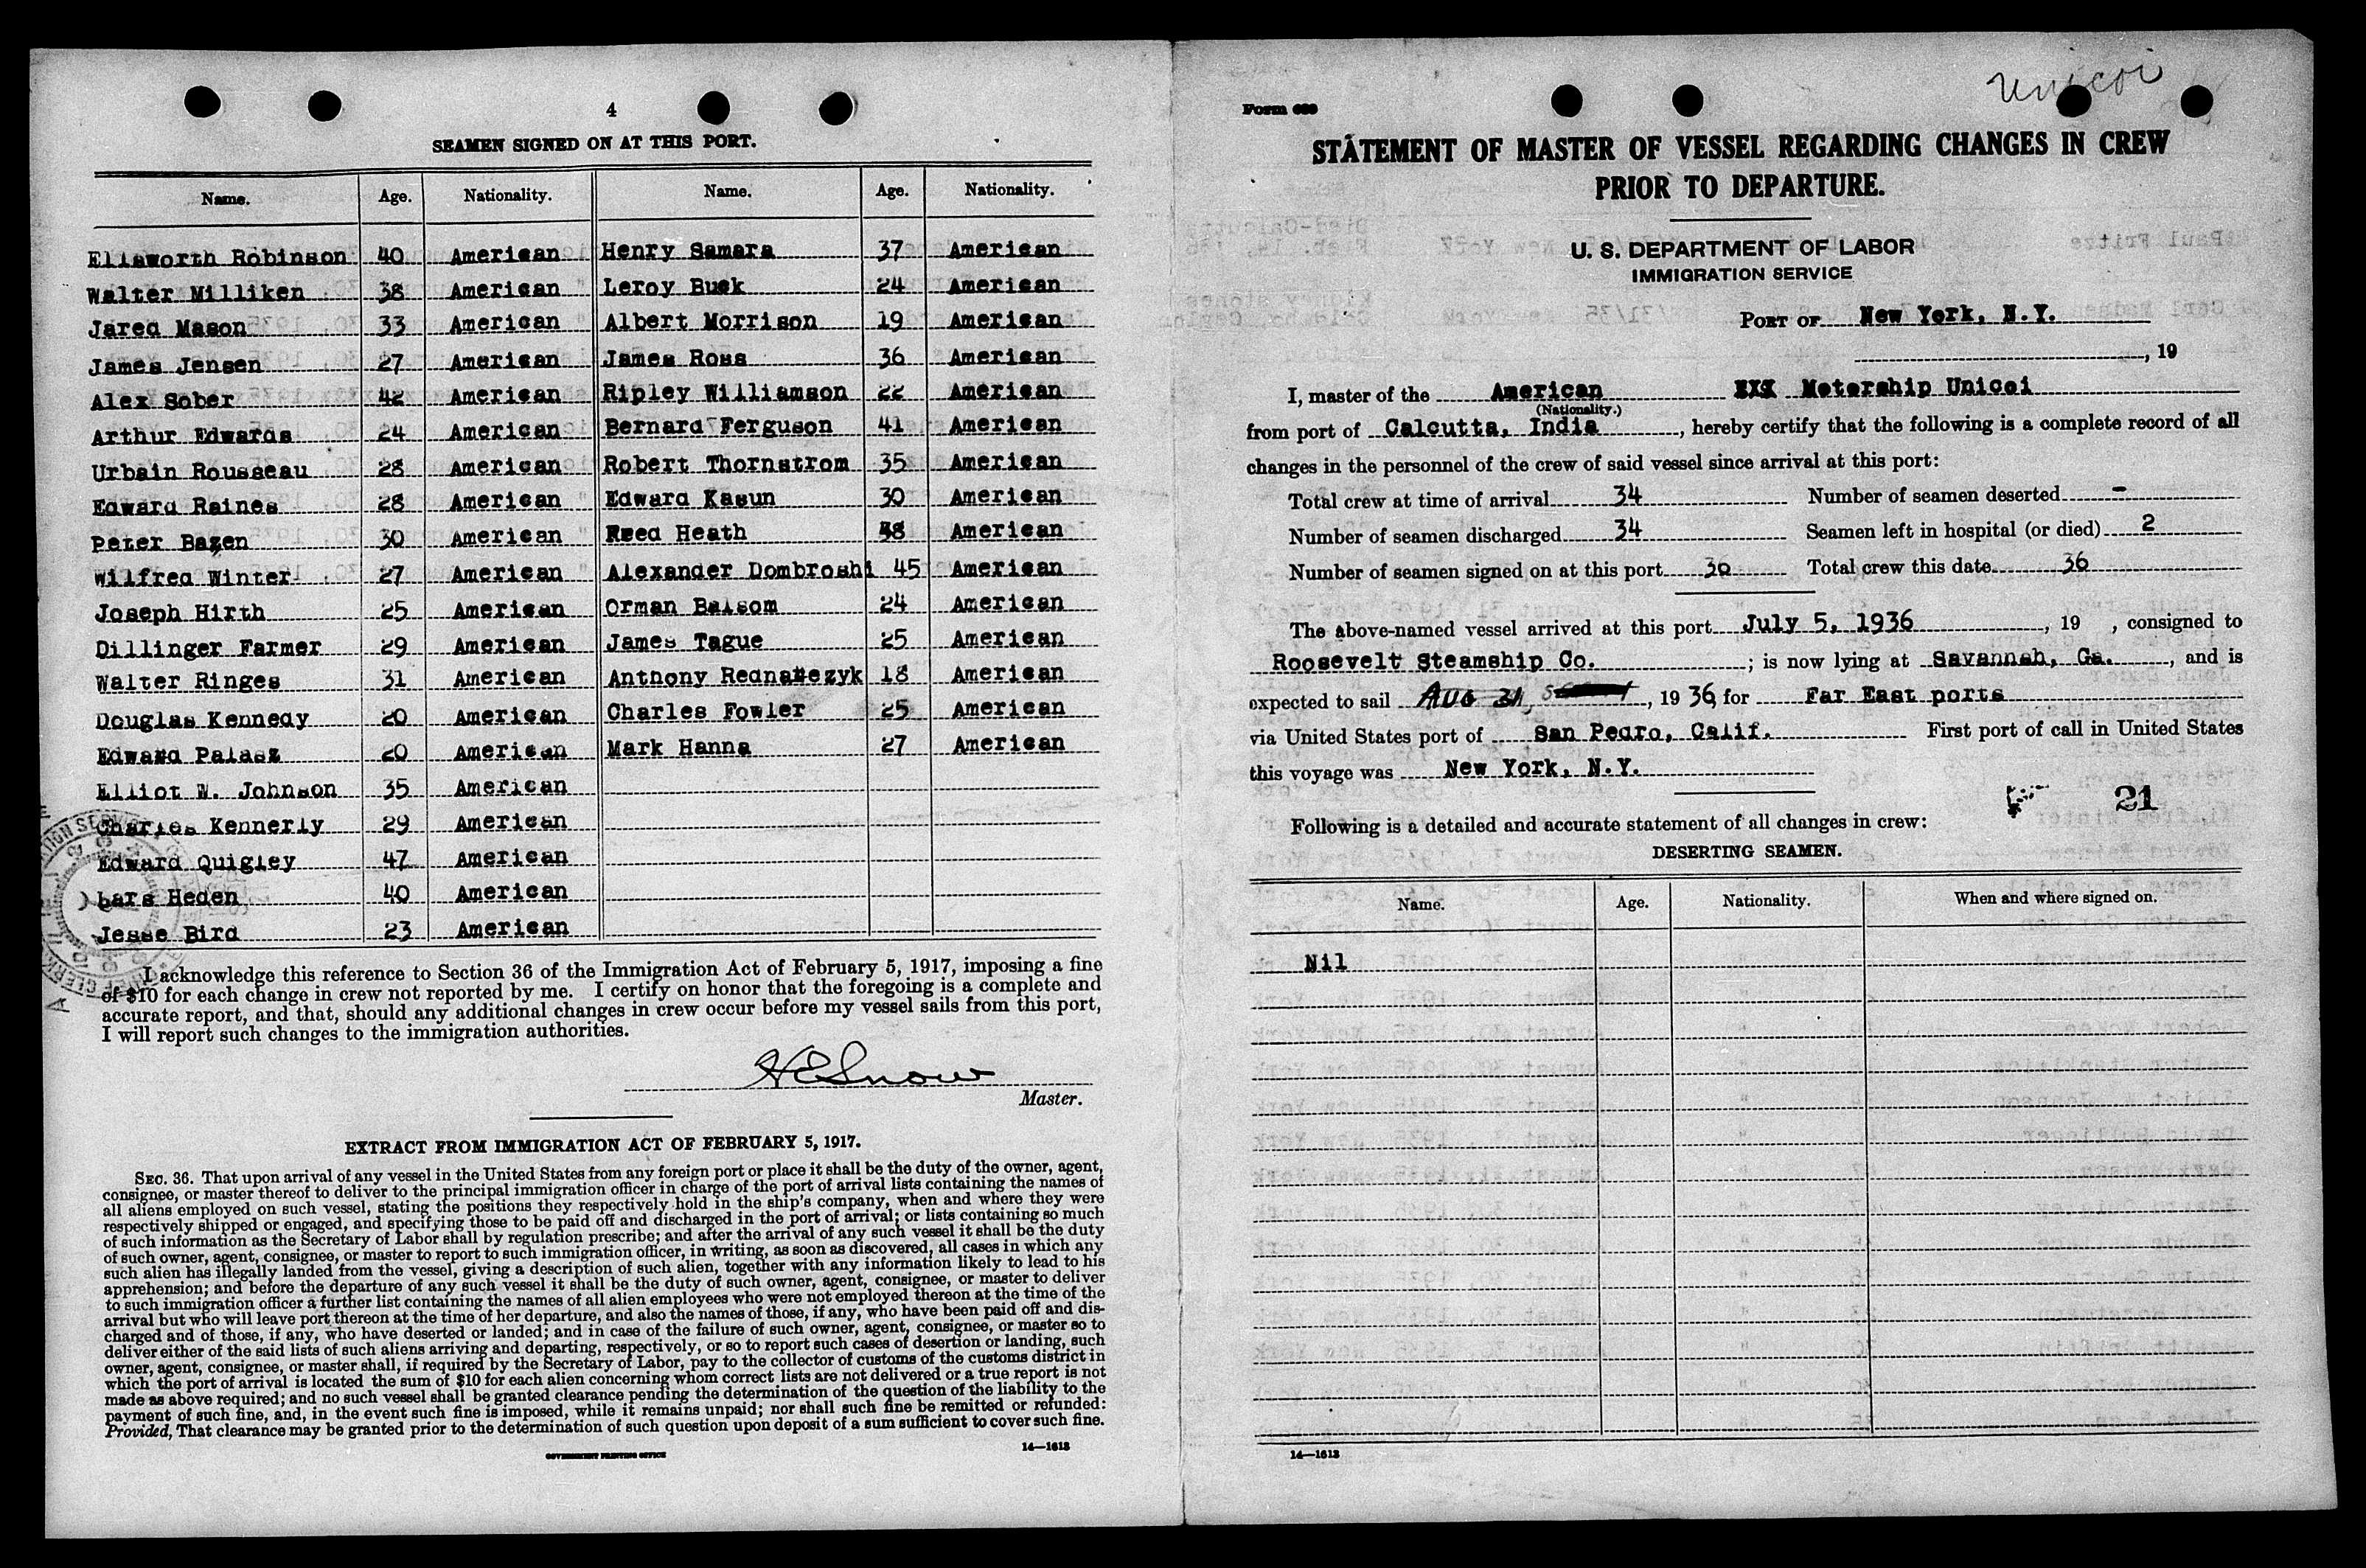 4
SEAMEN SIGNED ON AT THIS PORT.
Name. Age. Nationality. Name. Age. Nationality.
Ellsworth Robinson 40 American Henry Samara 37 American
Walter Milliken 38 American Leroy Buck 24 American
Jared Mason 33 American Albert Morrison 19 American
James Jensen 27 American James Ross 36 American
Alex Sober 42 American Ripley Williamson 22 American
Arthur Edwards 24 American Bernard Ferguson 41 American
Urbain Rousseau 28 American Robert Thornstrom 35 American
Edward Raines 28 American Edward Kasun 30 American
Peter Bazen 30 American Reed Heath 38 American
Wilfred Winter 27 American Alexander Dombroshi 45 American
Joseph Hirth 25 American Orman Balsom 24 American
Dillinger Farmer 29 American James Tague 25 American
Walter Ringes 31 American Anthony 18 American
Douglas Kennedy 20 American Charles Fowler 25 American
Edward Palasz 20 American Mark Hanna 27 American
Elliot W. Johnson 35 American
Charles Kennerly 29 American
Edward Quigley 47 American
Lars Heden 40 American
Jesse Bird 23 American
I acknowledge this reference to Section 36 of the Immigration Act of February 5, 1917, imposing a fine
of $10 for each change in crew not reported by me. I certify on honor that the foregoing is a complete and
accurate report, and that, should any additional changes in crew occur before my vessel sails from this port,
I will report such changes to the immigration authorities.
H E Snow
Master.
EXTRACT FROM IMMIGRATION ACT OF FEBRUARY 5, 1917.
SEC. 36. That upon arrival of any vessel in the United States from any foreign port or place it shall be the duty of the owner, agent,
consignee, or master thereof to deliver to the principal immigration officer in charge of the port of arrival lists containing the names of
all aliens employed on such vessel, stating the positions they respectively hold in the ship's company, when and where they were
respectively shipped or engaged, and specifying those to be paid off and discharged in the port of arrival; or lists containing so much
of such information as the Secretary of Labor shall by regulation prescribe; and after the arrival of any such vessel it shall be the duty
of such owner, agent, consignee, or master to report to such immigration officer, in writing, as soon as discovered, all cases in which any
such alien has illegally landed from the vessel, giving a description of such alien, together with any information likely to lead to his
apprehension; and before the departure of any such vessel it shall be the duty of such owner, agent, consignee, or master to deliver
to such immigration officer a further list containing the names of all alien employees who were not employed thereon at the time of the
arrival but who will leave port thereon at the time of her departure, and also the names of those, if any, who have been paid off and dis-
charged and of those, if any, who have deserted or landed; and in case of the failure of such owner, agent, consignee, or master so to
deliver either of the said lists of such aliens arriving and departing, respectively, or so to report such cases of desertion or landing, such
owner, agent, consignee, or master shall, if required by the Secretary of Labor, pay to the collector of customs of the customs district in
which the port of arrival is located the sum of $10 for each alien concerning whom correct lists are not delivered or a true report is not
made as above required; and no such vessel shall be granted clearance pending the determination of the question of the liability to the
payment of such fine, and, in the event such fine is imposed, while it remains unpaid; nor shall such fine be remitted or refunded:
Provided, That clearance may be granted prior to the determination of such question upon deposit of a sum sufficient to cover such fine.
GOVERNMENT PRINTING OFFICE 14—1613
Unicoi
Form 689
STATEMENT OF MASTER OF VESSEL REGARDING CHANGES IN CREW
PRIOR TO DEPARTURE.
U. S. DEPARTMENT OF LABOR
IMMIGRATION SERVICE
PORT OF New York, N.Y.
, 19
I, master of the American XXX Motorship Unicoi
(Nationality.)
from port of Calcutta, India, hereby certify that the following is a complete record of all
changes in the personnel of the crew of said vessel since arrival at this port:
Total crew at time of arrival 34 Number of seamen deserted -
Number of seamen discharged 34 Seamen left in hospital (or died) 2
Number of seamen signed on at this port 36 Total crew this date 36
The above-named vessel arrived at this port July 5, 1936, 19 , consigned to
Roosevelt Steamship Co. ; is now lying at Savannah, Ga., and is
expected to sail Aug 31, 1936, for Far East ports
via United States port of San Pedro, Calif. First port of call in United States
this voyage was New York, N.Y.
21
Following is a detailed and accurate statement of all changes in crew:
DESERTING SEAMEN.
Name. Age. Nationality. When and where signed on.
Nil
14—1613